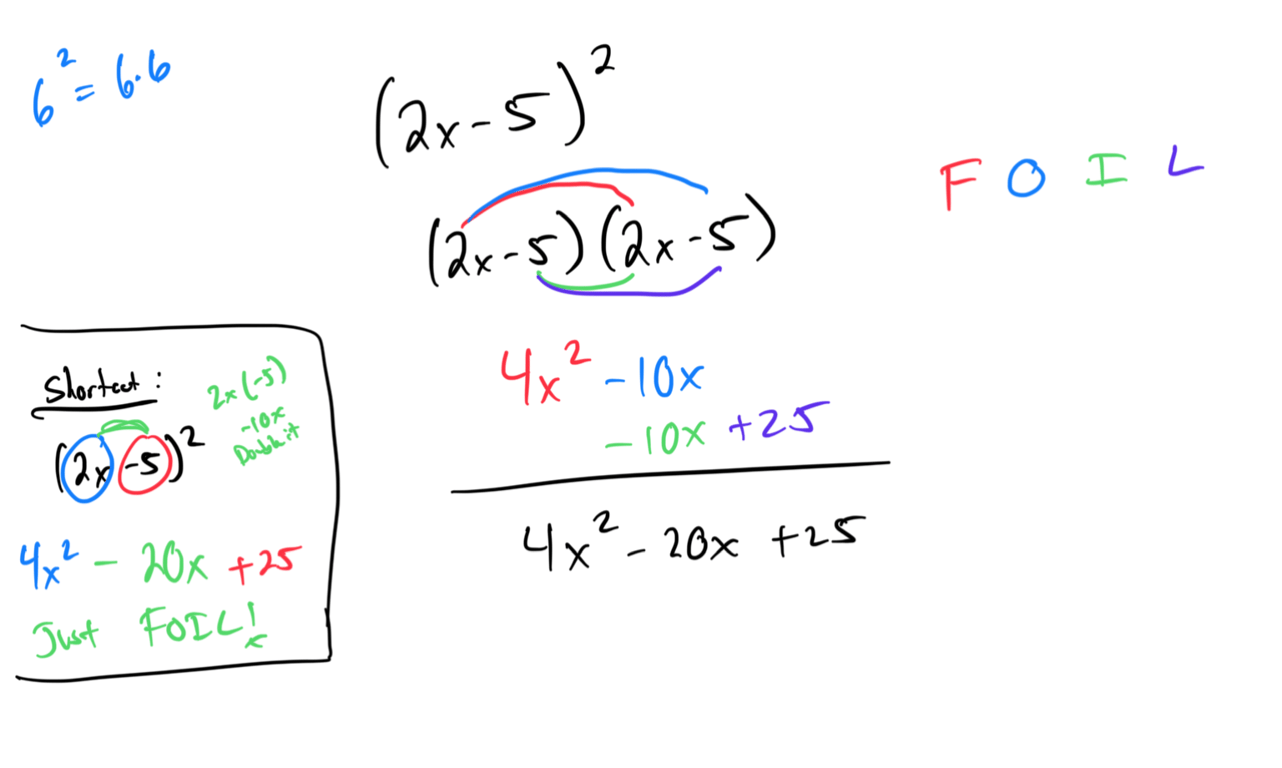 6² = 6·6
(2x - 5)²
F O I L
(2x - 5)(2x - 5)
4x² - 10x
- 10x + 25
4x² - 20x + 25
Shortcut:
2x(-5)
-10x
Double it
(2x -5)²
4x² - 20x + 25
Just FOIL!